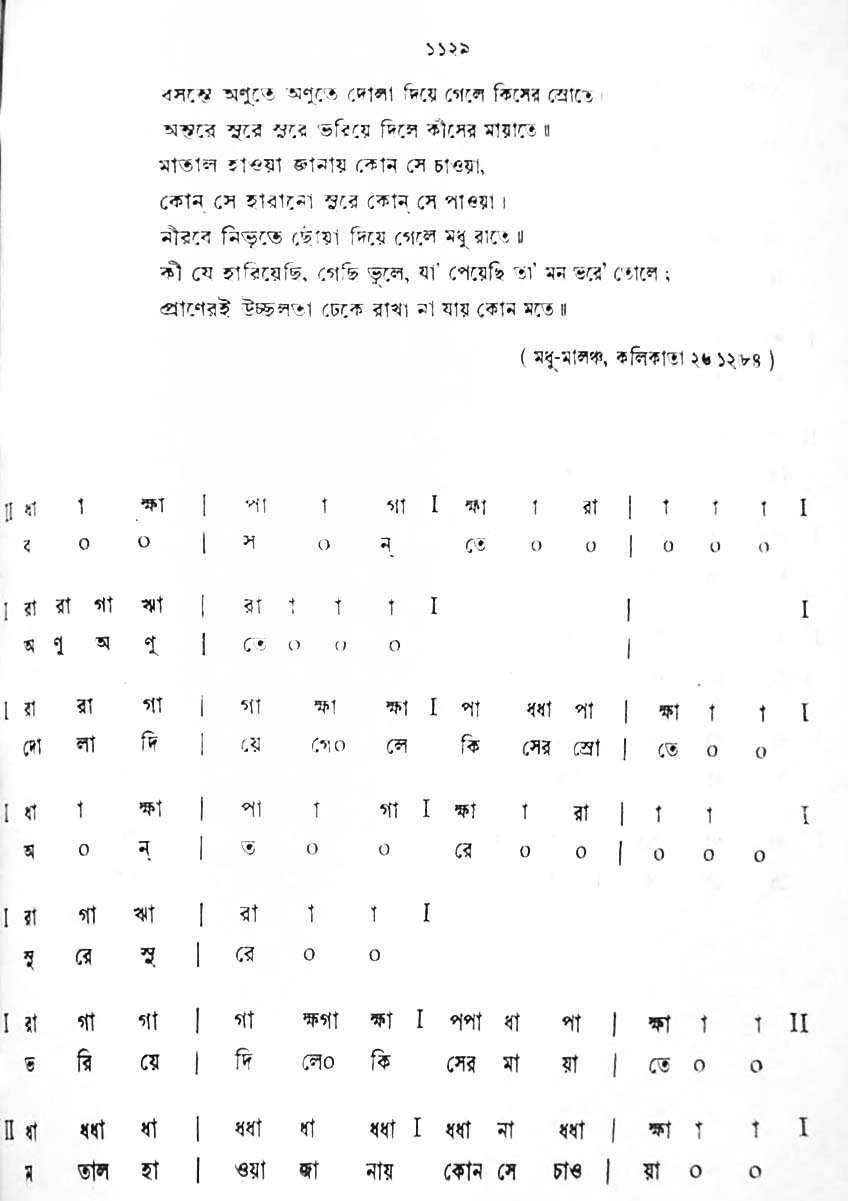 ১১২৯
বসন্তে অণুতে অণুতে দোলা দিয়ে গেলে কিসের স্রোতে।
অন্তরে সুরে সুরে ভরিয়ে দিলে কীসের মায়াতে॥
মাতাল হাওয়া জানায় কোন সে চাওয়া,
কোন্ সে হারানো সুরে কোন্ সে পাওয়া।
নীরবে নিভৃতে ছোঁয়া দিয়ে গেলে মধু রাতে॥
কী যে হারিয়েছি, গেছি ভুলে, যা' পেয়েছি তা' মন ভরে' তোলে;
প্রাণেরই উচ্ছলতা ঢেকে রাখা না যায় কোন মতে॥
( মধু-মালঞ্চ, কলিকাতা ২৬ ১২৮৪ )
II ধা া ক্ষা | পা া গা I ক্ষা া রা | া া া I
ব ০ ০ | স ০ ন্ তে ০ ০ | ০ ০ ০
I রা রা গা ঋা | রা া া া I | I
অ ণু অ ণু | তে ০ ০ ০ |
I রা রা গা | গা ক্ষা ক্ষা I পা ধধা পা | ক্ষা া া I
দো লা দি | য়ে গে০ লে কি সের স্রো | তে ০ ০
I ধা া ক্ষা | পা া গা I ক্ষা া রা | া া I
অ ০ ন্ | ত ০ ০ রে ০ ০ | ০ ০ ০
I রা গা ঋা | রা া া I
সু রে সু | রে ০ ০
I রা গা গা | গা ক্ষগা ক্ষা I পপা ধা পা | ক্ষা া া II
ভ রি য়ে | দি লে০ কি সের মা য়া | তে ০ ০
II ধা ধধা ধা | ধধা ধা ধধা I ধধা না ধধা | ক্ষা া া I
ম তাল হা | ওয়া জা নায় কোন সে চাও | য়া ০ ০